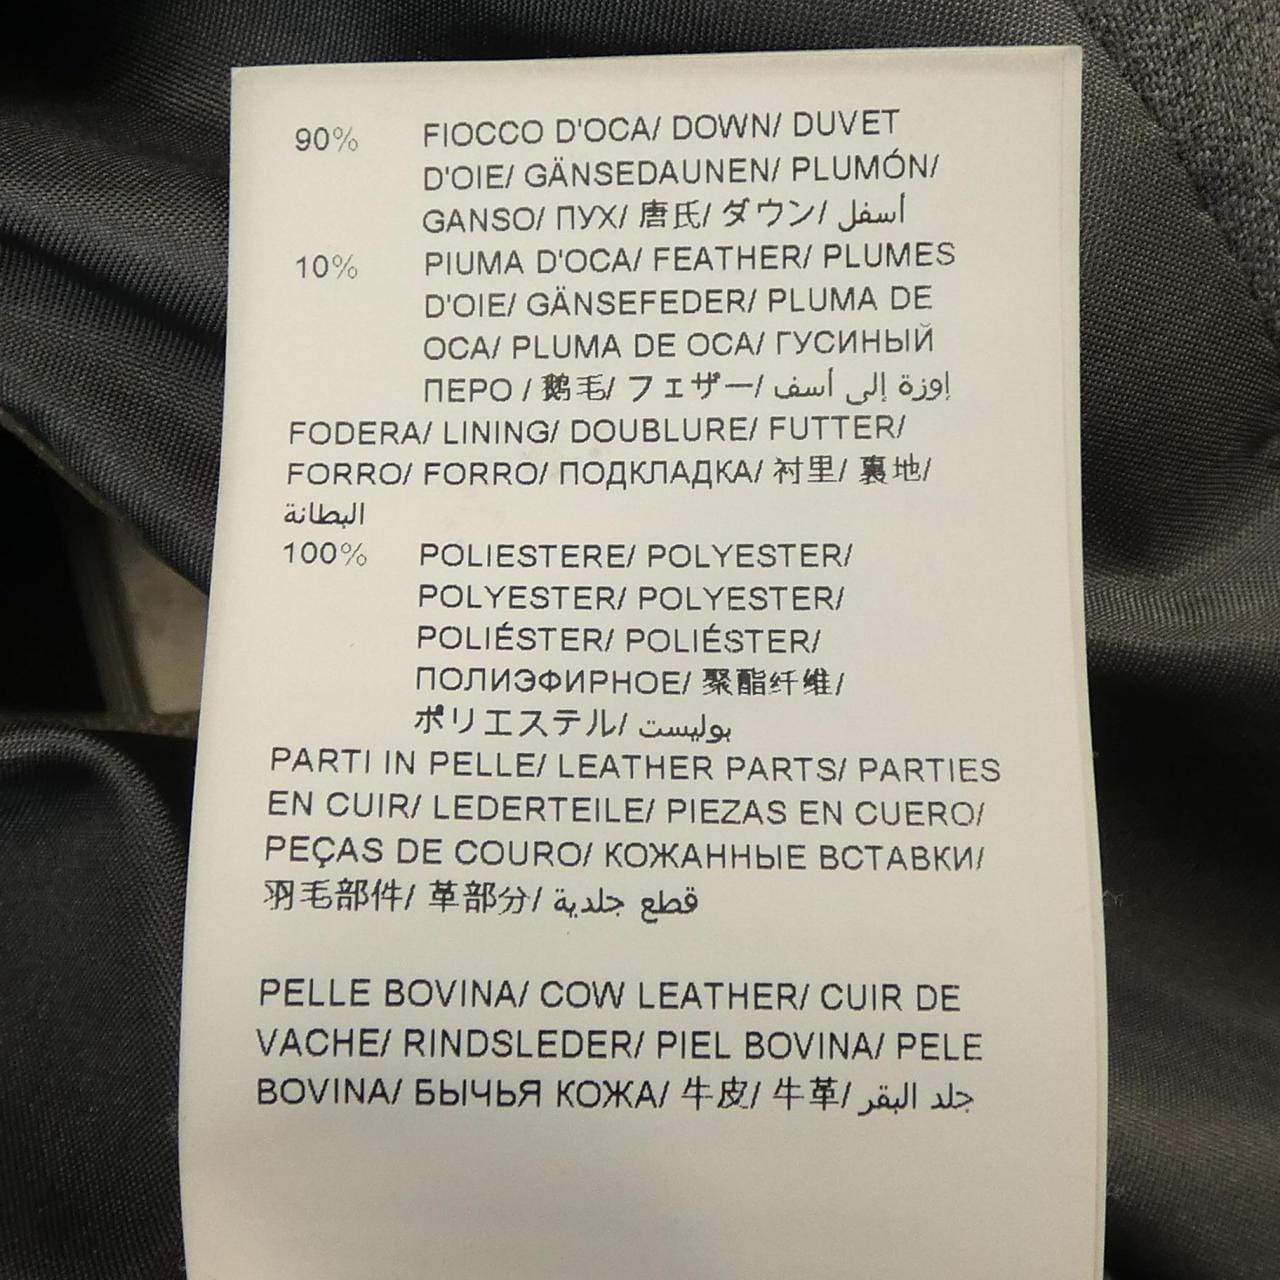 90% FIOCCO D'OCA/ DOWN/ DUVET
D'OIE/ GÄNSEDAUNEN/ PLUMÓN/
GANSO/ ПУХ/ 唐氏/ ダウン/ أسفل
10% PIUMA D'OCA/ FEATHER/ PLUMES
D'OIE/ GÄNSEFEDER/ PLUMA DE
OCA/ PLUMA DE OCA/ ГУСИНЫЙ
ПЕРО / 鹅毛/ フェザー/ إوزة إلى أسف
FODERA/ LINING/ DOUBLURE/ FUTTER/
FORRO/ FORRO/ ПОДКЛАДКА/ 衬里/ 裏地/
البطانة
100% POLIESTERE/ POLYESTER/
POLYESTER/ POLYESTER/
POLIÉSTER/ POLIÉSTER/
ПОЛИЭФИРНОЕ/ 聚酯纤维/
ポリエステル/ بوليست
PARTI IN PELLE/ LEATHER PARTS/ PARTIES
EN CUIR/ LEDERTEILE/ PIEZAS EN CUERO/
PEÇAS DE COURO/ КОЖАННЫЕ ВСТАВКИ/
羽毛部件/ 革部分/ قطع جلدية
PELLE BOVINA/ COW LEATHER/ CUIR DE
VACHE/ RINDSLEDER/ PIEL BOVINA/ PELE
BOVINA/ БЫЧЬЯ КОЖА/ 牛皮/ 牛革/ جلد البقر